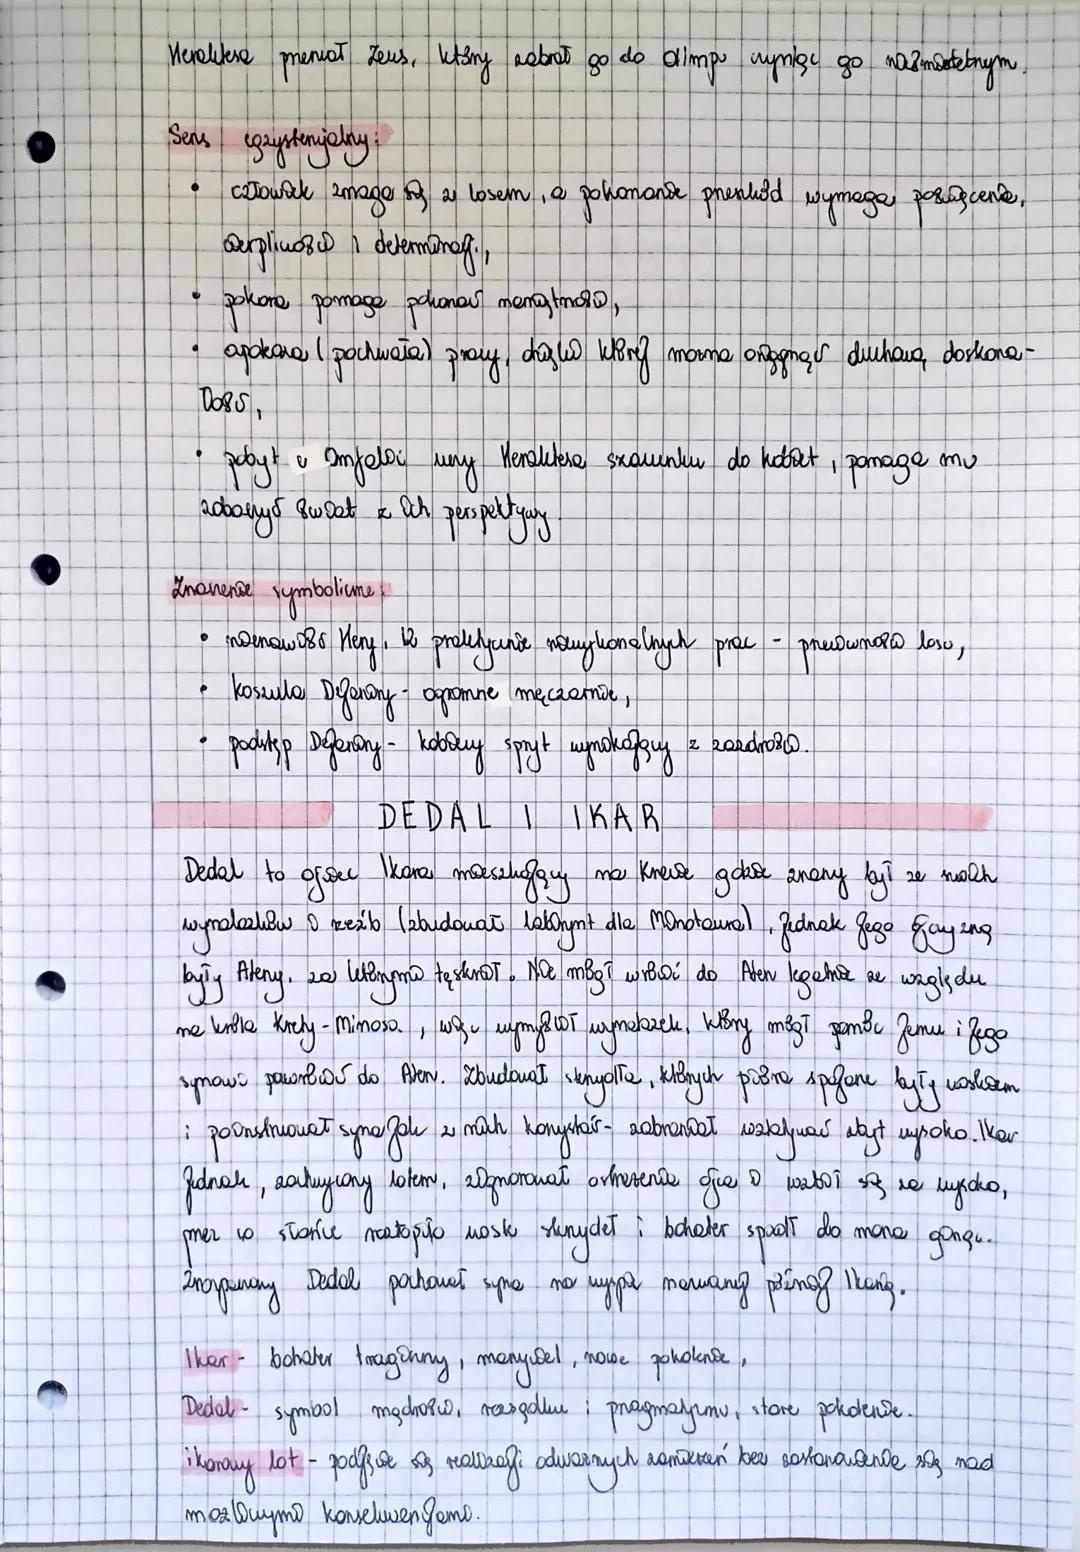 Heraklesa Zeus, który zabrał go do Olimpu czyniąc go nieśmiertelnym.
Sens egzystencjalny:
• człowiek zmaga się z losem, a pokonanie przeszkód wymaga poświęcenia,
cierpliwości i determinacji,
• pokora pomaga pokonać
• (pochwała) pracy, dzięki której można osiągnąć duchową doskona-
łość,
• pobyt u Omfalii uczy Heraklesa szacunku do kobiet, pomaga mu
zobaczyć świat z ich perspektywy.
Znaczenie symboliczne:
• nienawiść Hery, 12 praktycznie niewykonalnych prac - przewrotność losu,
• koszula Dejaniry - ogromne męczarnie,
• podstęp Dejaniry - kobiecy spryt wynikający z zazdrości.
DEDAL I IKAR
Dedal to ojciec Ikara mieszkający na Krecie gdzie znany był ze swoich
wynalazków i rzeźb (zbudował labirynt dla Minotaura), jednak jego ojczyzną
były Ateny, za którymi tęsknił. Nie mógł wrócić do Aten legalnie ze względu
na króla Krety - Minosa, więc wymyślił wynalazek, który mógł pomóc jemu i jego
synowi powrócić do Aten. Zbudował skrzydła, których pióra spojone były woskiem
i poinstruował syna jak z nich korzystać - zabraniał wzlatywać zbyt wysoko. Ikar
jednak, zachwycony lotem, zignorował ostrzeżenie ojca i wzbił się za wysoko,
przez co słońce roztopiło wosk skrzydeł i bohater spadł do morza ginąc.
Zrozpaczony Dedal pochował syna na wyspie nazwanej później Ikarią.
Ikar - bohater tragiczny, marzyciel, nowe pokolenie,
Dedal - symbol mądrości, rozsądku i pragmatyzmu, stare pokolenie.
ikarowy lot - podjęcie się realizacji odważnych zamierzeń bez zastanowienia się nad
możliwymi konsekwencjami.